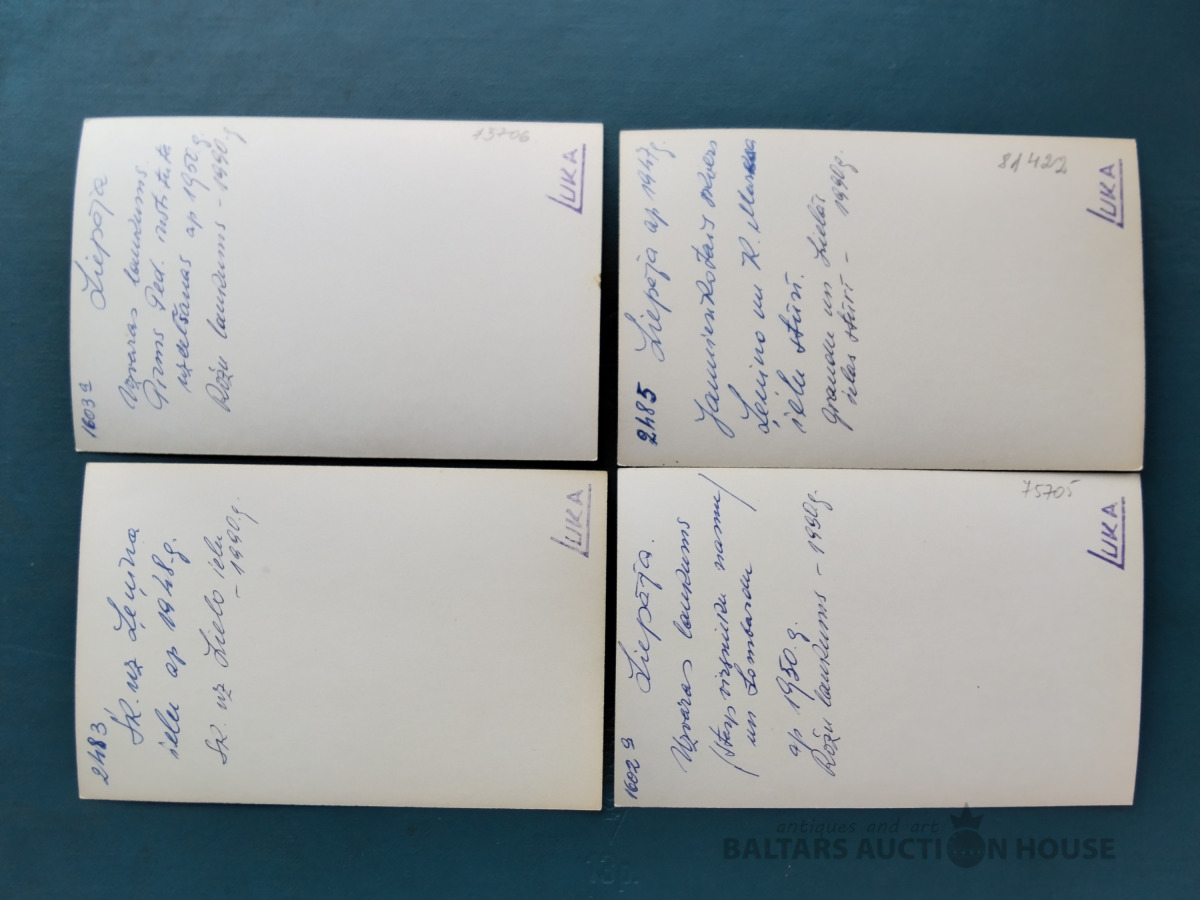 1603 a
Liepāja
Uzvaras laukums
Pirms Ped. institūta
uzcelšanas ap 1950.g.
Rožu laukums - 1990.g
75706
LUKA
2485
Liepāja ap 1947g.
Jaunierīkotais skvers
Ļeņina un K. Marksa
ielu stūrī.
Graudu un Lielās
ielas stūrī - 1990g.
81422
LUKA
2483
Sk. uz Ļeņina
ielu ap 1948.g.
Sk. uz Lielo ielu
- 1990.g
LUKA
1602 a
Liepāja.
Uzvaras laukums
/starp virsnieku namu/
un Lombardu
ap 1950.g.
Rožu laukums - 1990g.
75705
LUKA
antiques and art
BALTARS AUCTION HOUSE